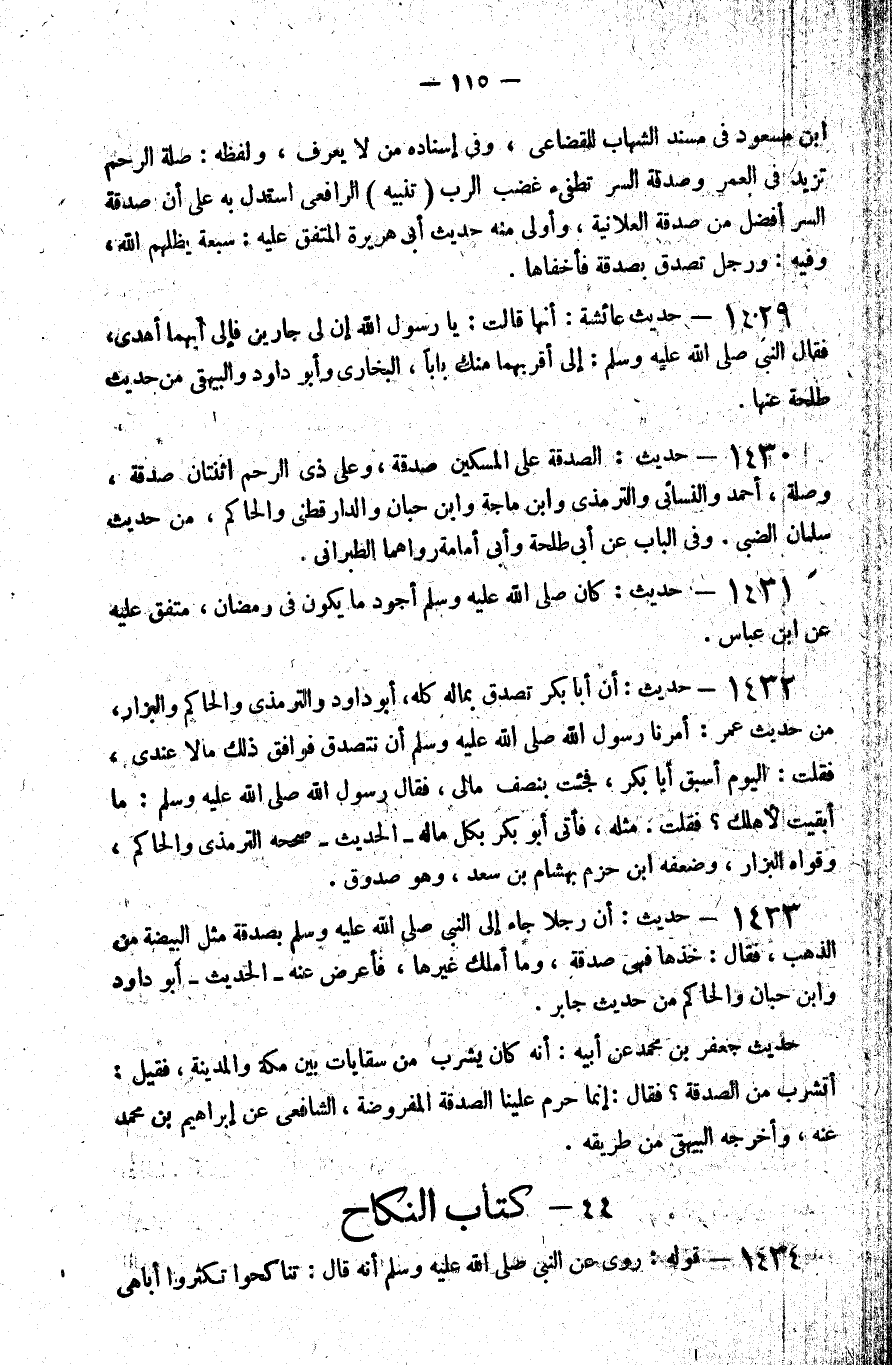 — ١١٥ —
ابن مسعود فى مسند الشهاب للقضاعى ، وفى إسناده من لا يعرف ، ولفظه : صلة الرحم
تزيد فى العمر وصدقة السر تطفىء غضب الرب ( تنبيه ) الرافعى استدل به على أن صدقة
السر أفضل من صدقة العلانية ، وأولى منه حديث أبى هريرة المتفق عليه : سبعة يظلهم الله ،
وفيه : ورجل تصدق بصدقة فأخفاها .
١٤٢٩ — حديث عائشة : أنها قالت : يا رسول الله إن لى جارين فإلى أيهما أهدى ،
فقال النبى صلى الله عليه وسلم : إلى أقربهما منك باباً ، البخارى وأبو داود والبيهقى من حديث
طلحة عنها .
١٤٣٠ — حديث : الصدقة على المسكين صدقة ، وعلى ذى الرحم اثنتان صدقة ،
وصلة ، أحمد والنسائى والترمذى وابن ماجة وابن حبان والدارقطنى والحاكم ، من حديث
سلمان الضبى . وفى الباب عن أبى طلحة وأبى أمامة رواهما الطبرانى .
١٤٣١ — حديث : كان صلى الله عليه وسلم أجود ما يكون فى رمضان ، متفق عليه
عن ابن عباس .
١٤٣٢ — حديث : أن أبا بكر تصدق بماله كله ، أبو داود والترمذى والحاكم والبزار ،
من حديث عمر : أمرنا رسول الله صلى الله عليه وسلم أن نتصدق فوافق ذلك مالا عندى ،
فقلت : اليوم أسبق أبا بكر ، فجئت بنصف مالى ، فقال رسول الله صلى الله عليه وسلم : ما
أبقيت لأهلك ؟ فقلت . مثله ، فأتى أبو بكر بكل ماله ـ الحديث ـ صححه الترمذى والحاكم ،
وقواه البزار ، وضعفه ابن حزم بهشام بن سعد ، وهو صدوق .
١٤٣٣ — حديث : أن رجلا جاء إلى النبى صلى الله عليه وسلم بصدقة مثل البيضة من
الذهب ، فقال : خذها فهى صدقة ، وما أملك غيرها ، فأعرض عنه ـ الحديث ـ أبو داود
وابن حبان والحاكم من حديث جابر .
حديث جعفر بن محمد عن أبيه : أنه كان يشرب من سقايات بين مكة والمدينة ، فقيل :
أتشرب من الصدقة ؟ فقال : إنما حرم علينا الصدقة المفروضة ، الشافعى عن إبراهيم بن محمد
عنه ، وأخرجه البيهقى من طريقه .
٤٤ — كتاب النكاح
١٤٣٤ — قوله : روى عن النبى صلى الله عليه وسلم أنه قال : تناكحوا تكثروا أباهى